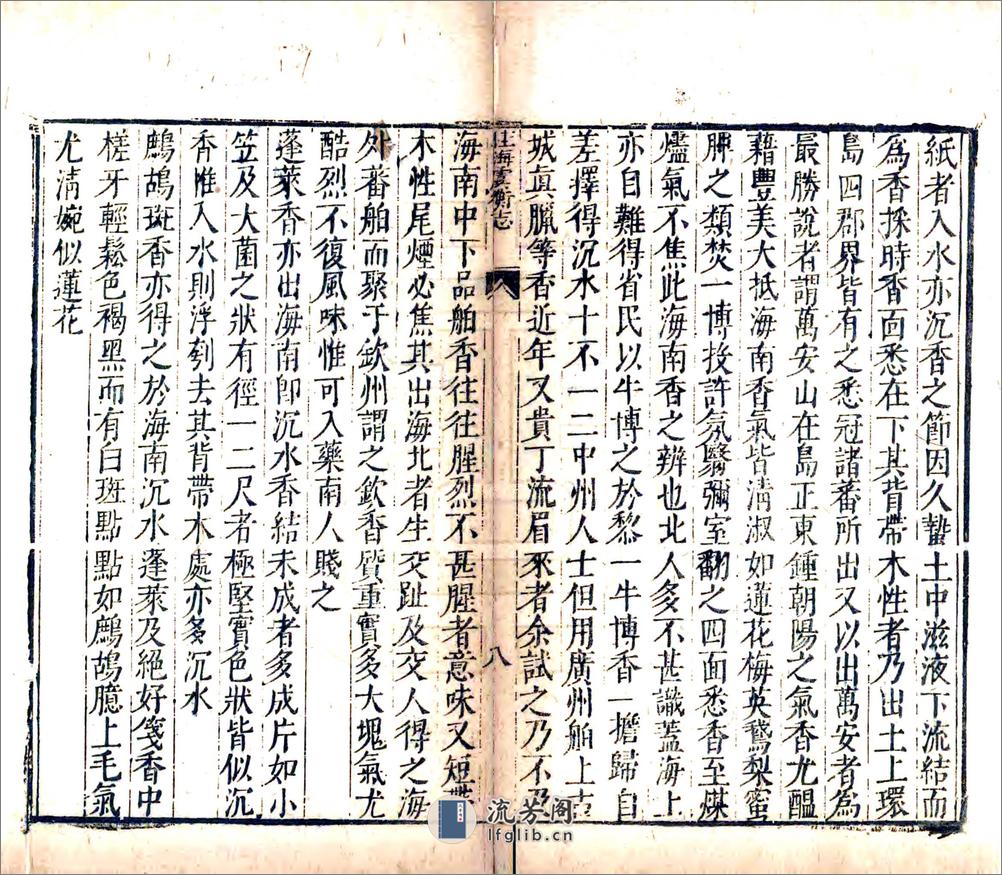 紙者入水亦沉香之節因久蟄土中滋液下流結而
為香採時香面悉在下其背帶木性者乃出土上環
島四郡界皆有之悉冠諸蕃所出又以出萬安者為
最勝說者謂萬安山在島正東鍾朝陽之氣香尤醖
藉豐美大抵海南香氣皆清淑如蓮花梅英鵞梨蜜
脾之類焚一博投許氛翳彌室翻之四面悉香至煤
燼氣不焦此海南香之辨也北人多不甚識蓋海上
亦自難得省民以牛博之於黎一牛博香一擔歸自
差擇得沉水十不一二中州人士但用廣州舶上占
城真臘等香近年又貴丁流眉來者余試之乃不及
桂海虞衡志
八
海南中下品舶香往往腥烈不甚腥者意味又短帶
木性尾煙必焦其出海北者生交趾及交人得之海
外蕃舶而聚于欽州謂之欽香質重實多大塊氣尤
酷烈不復風味惟可入藥南人賤之
蓬萊香亦出海南即沉水香結未成者多成片如小
笠及大菌之狀有徑一二尺者極堅實色狀皆似沉
香惟入水則浮刳去其背帶木處亦多沉水
鷓鴣斑香亦得之於海南沉水蓬萊及絕好箋香中
槎牙輕鬆色褐黑而有白斑點點如鷓鴣臆上毛氣
尤清婉似蓮花
流芳阁
lfglib.cn